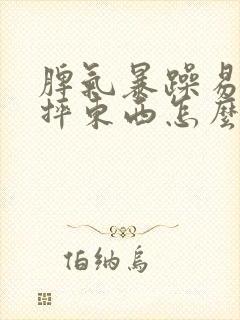 脾氣暴躁易
摔東西怎麼
伯納烏